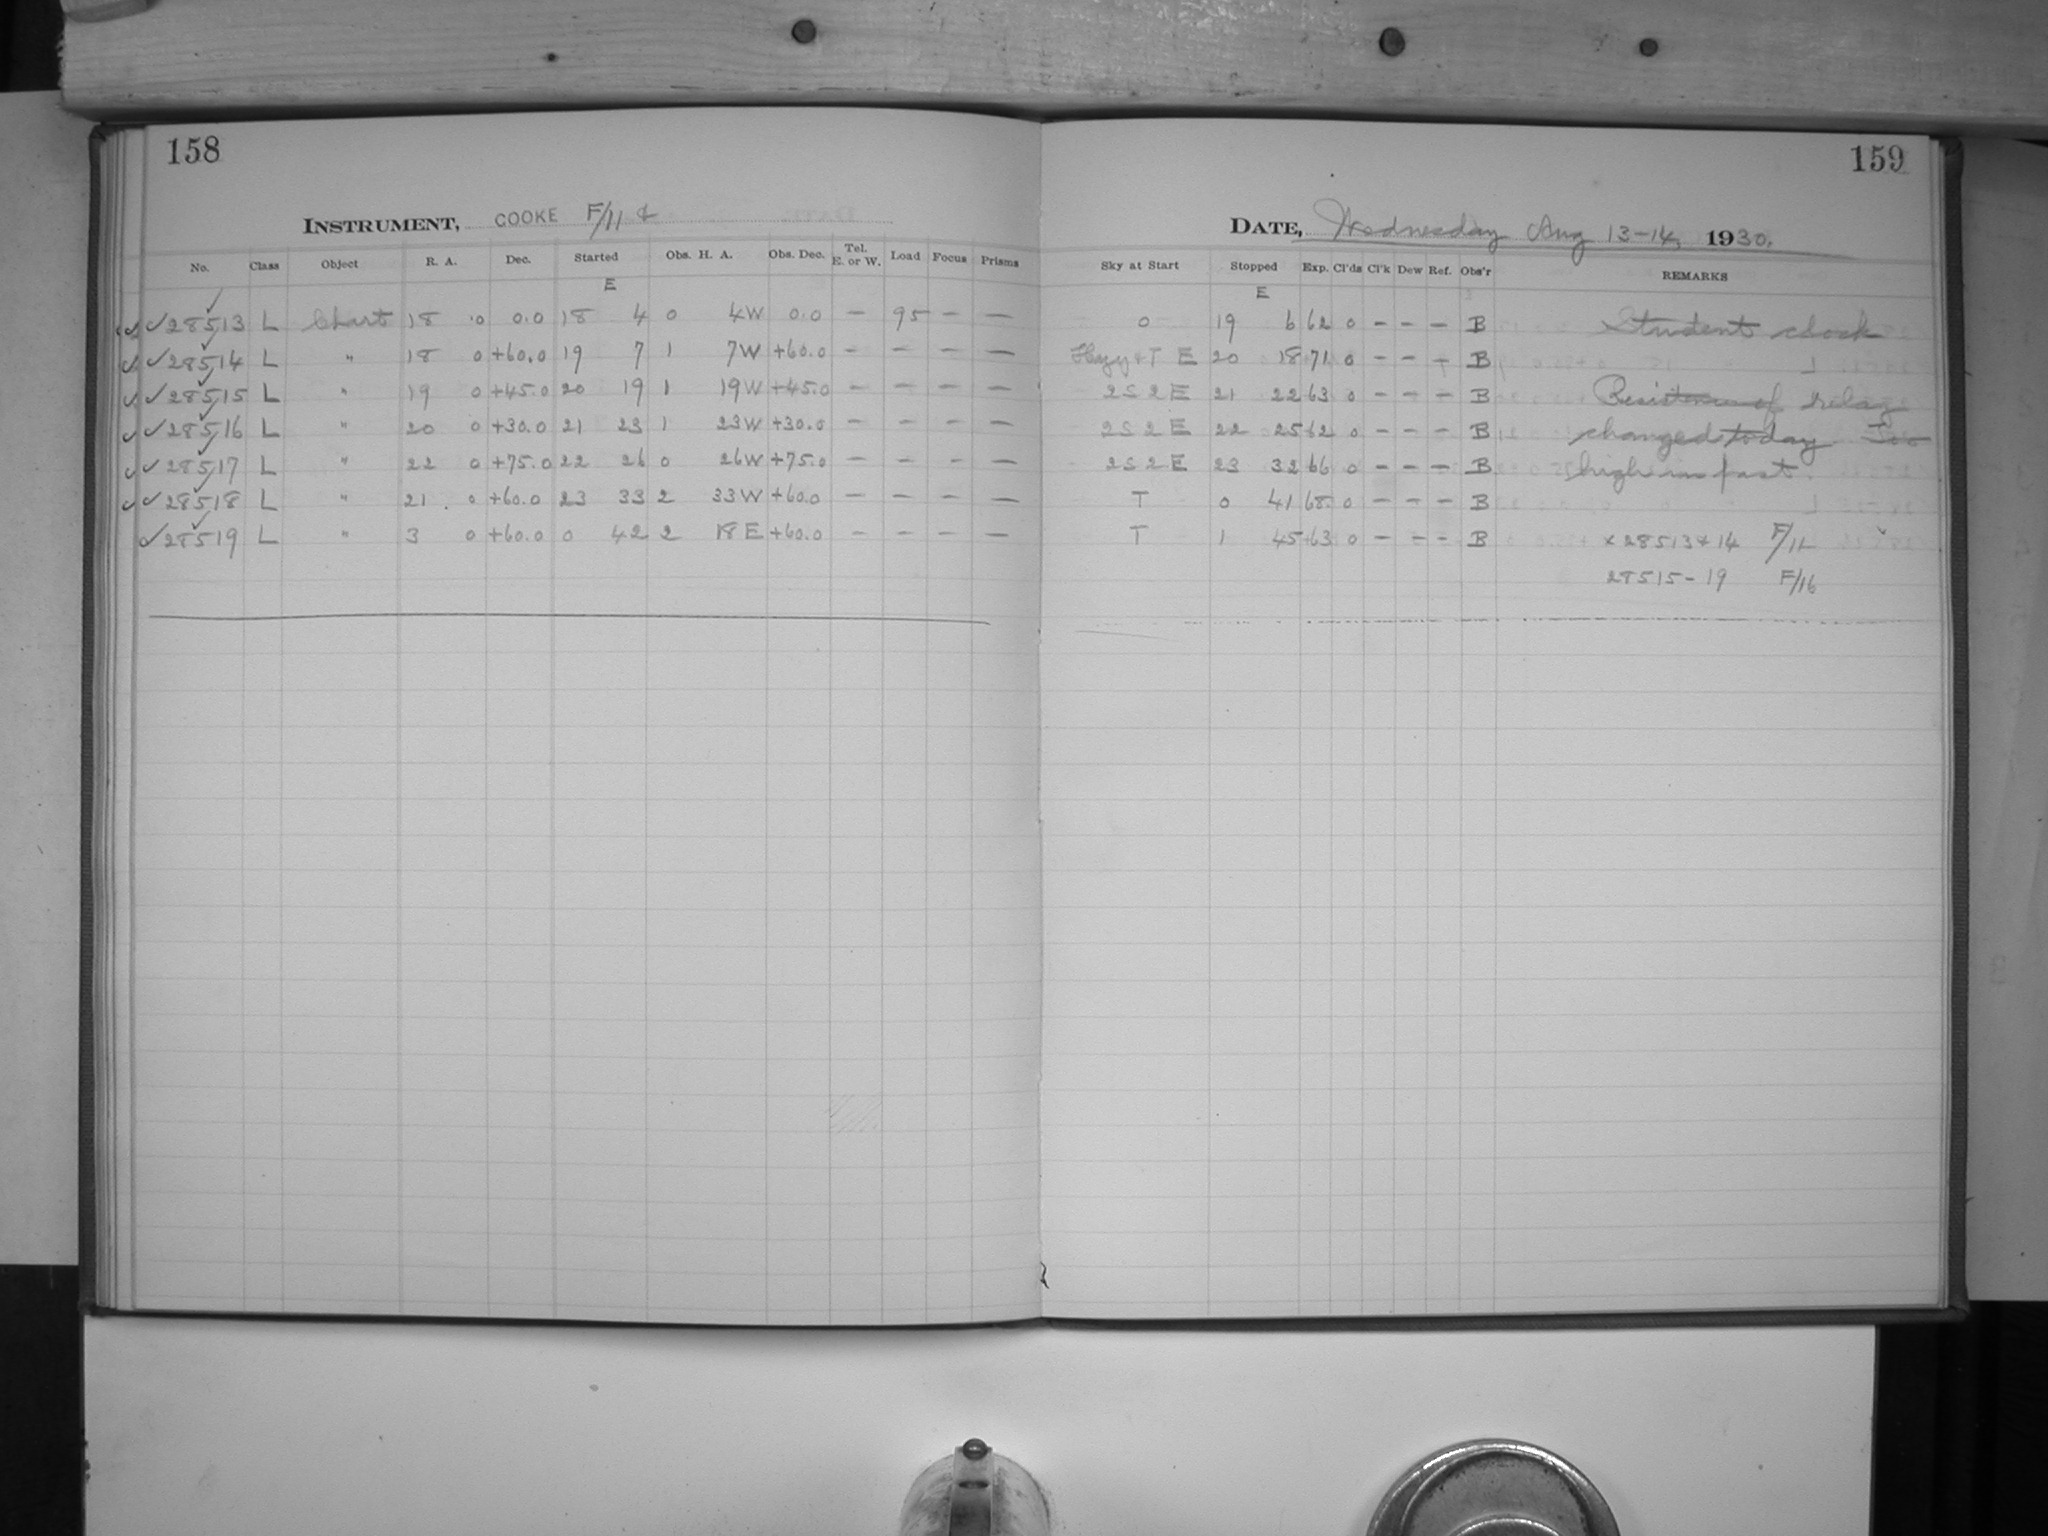 158
INSTRUMENT, COOKE F/11 &
No. Class Object R. A. Dec. Started Obs. H. A. Obs. Dec. Tel. E. or W. Load Focus Prisms
E
28513 L Chart 18 0 0.0 18 4 0 4W 0.0 - 95 - -
28514 L " 18 0 +60.0 19 7 1 7W +60.0 - - - -
28515 L " 19 0 +45.0 20 19 1 19W +45.0 - - - -
28516 L " 20 0 +30.0 21 23 1 23W +30.0 - - - -
28517 L " 22 0 +75.0 22 26 0 26W +75.0 - - - -
28518 L " 21 0 +60.0 23 33 2 33W +60.0 - - - -
28519 L " 3 0 +60.0 0 42 2 18E +60.0 - - - -
159
DATE, Wednesday Aug 13-14, 1930.
Sky at Start Stopped Exp. Cl'ds Cl'k Dew Ref. Obs'r REMARKS
E
0 19 6 62 0 - - - B Student clock
Hazy + T E 20 18 71 0 - - - B
2S 2 E 21 22 63 0 - - - B Resistance of relay
2S 2 E 22 25 62 0 - - - B changed today Too
2S 2 E 23 32 66 0 - - - B high in past.
T 0 41 68 0 - - - B
T 1 45 63 0 - - - B x 28513+14 F/11
28515-19 F/16